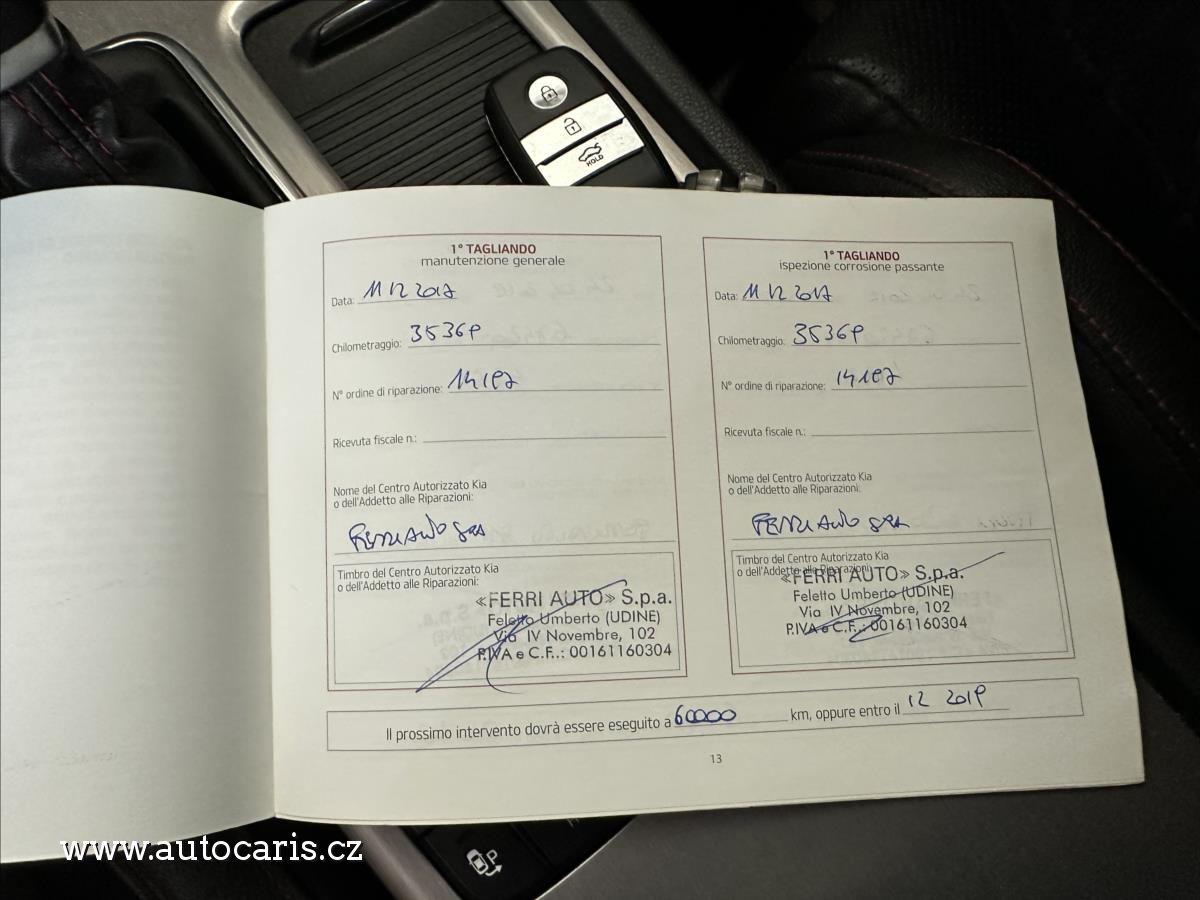 HOLD
1° TAGLIANDO
manutenzione generale
Data: 11 12 2017
Chilometraggio: 35369
N° ordine di riparazione: 14197
Ricevuta fiscale n.:
Nome del Centro Autorizzato Kia
o dell'Addetto alle Riparazioni:
FERRI AUTO SPA
Timbro del Centro Autorizzato Kia
o dell'Addetto alle Riparazioni:
«FERRI AUTO» S.p.a.
Feletto Umberto (UDINE)
Via IV Novembre, 102
P.IVA e C.F.: 00161160304
1° TAGLIANDO
ispezione corrosione passante
Data: 11 12 2017
Chilometraggio: 35369
N° ordine di riparazione: 14197
Ricevuta fiscale n.:
Nome del Centro Autorizzato Kia
o dell'Addetto alle Riparazioni:
FERRI AUTO SPA
Timbro del Centro Autorizzato Kia
o dell'Addetto alle Riparazioni:
«FERRI AUTO» S.p.a.
Feletto Umberto (UDINE)
Via IV Novembre, 102
P.IVA e C.F.: 00161160304
Il prossimo intervento dovrà essere eseguito a 60000 km, oppure entro il 12 2019
13
www.autocaris.cz
P